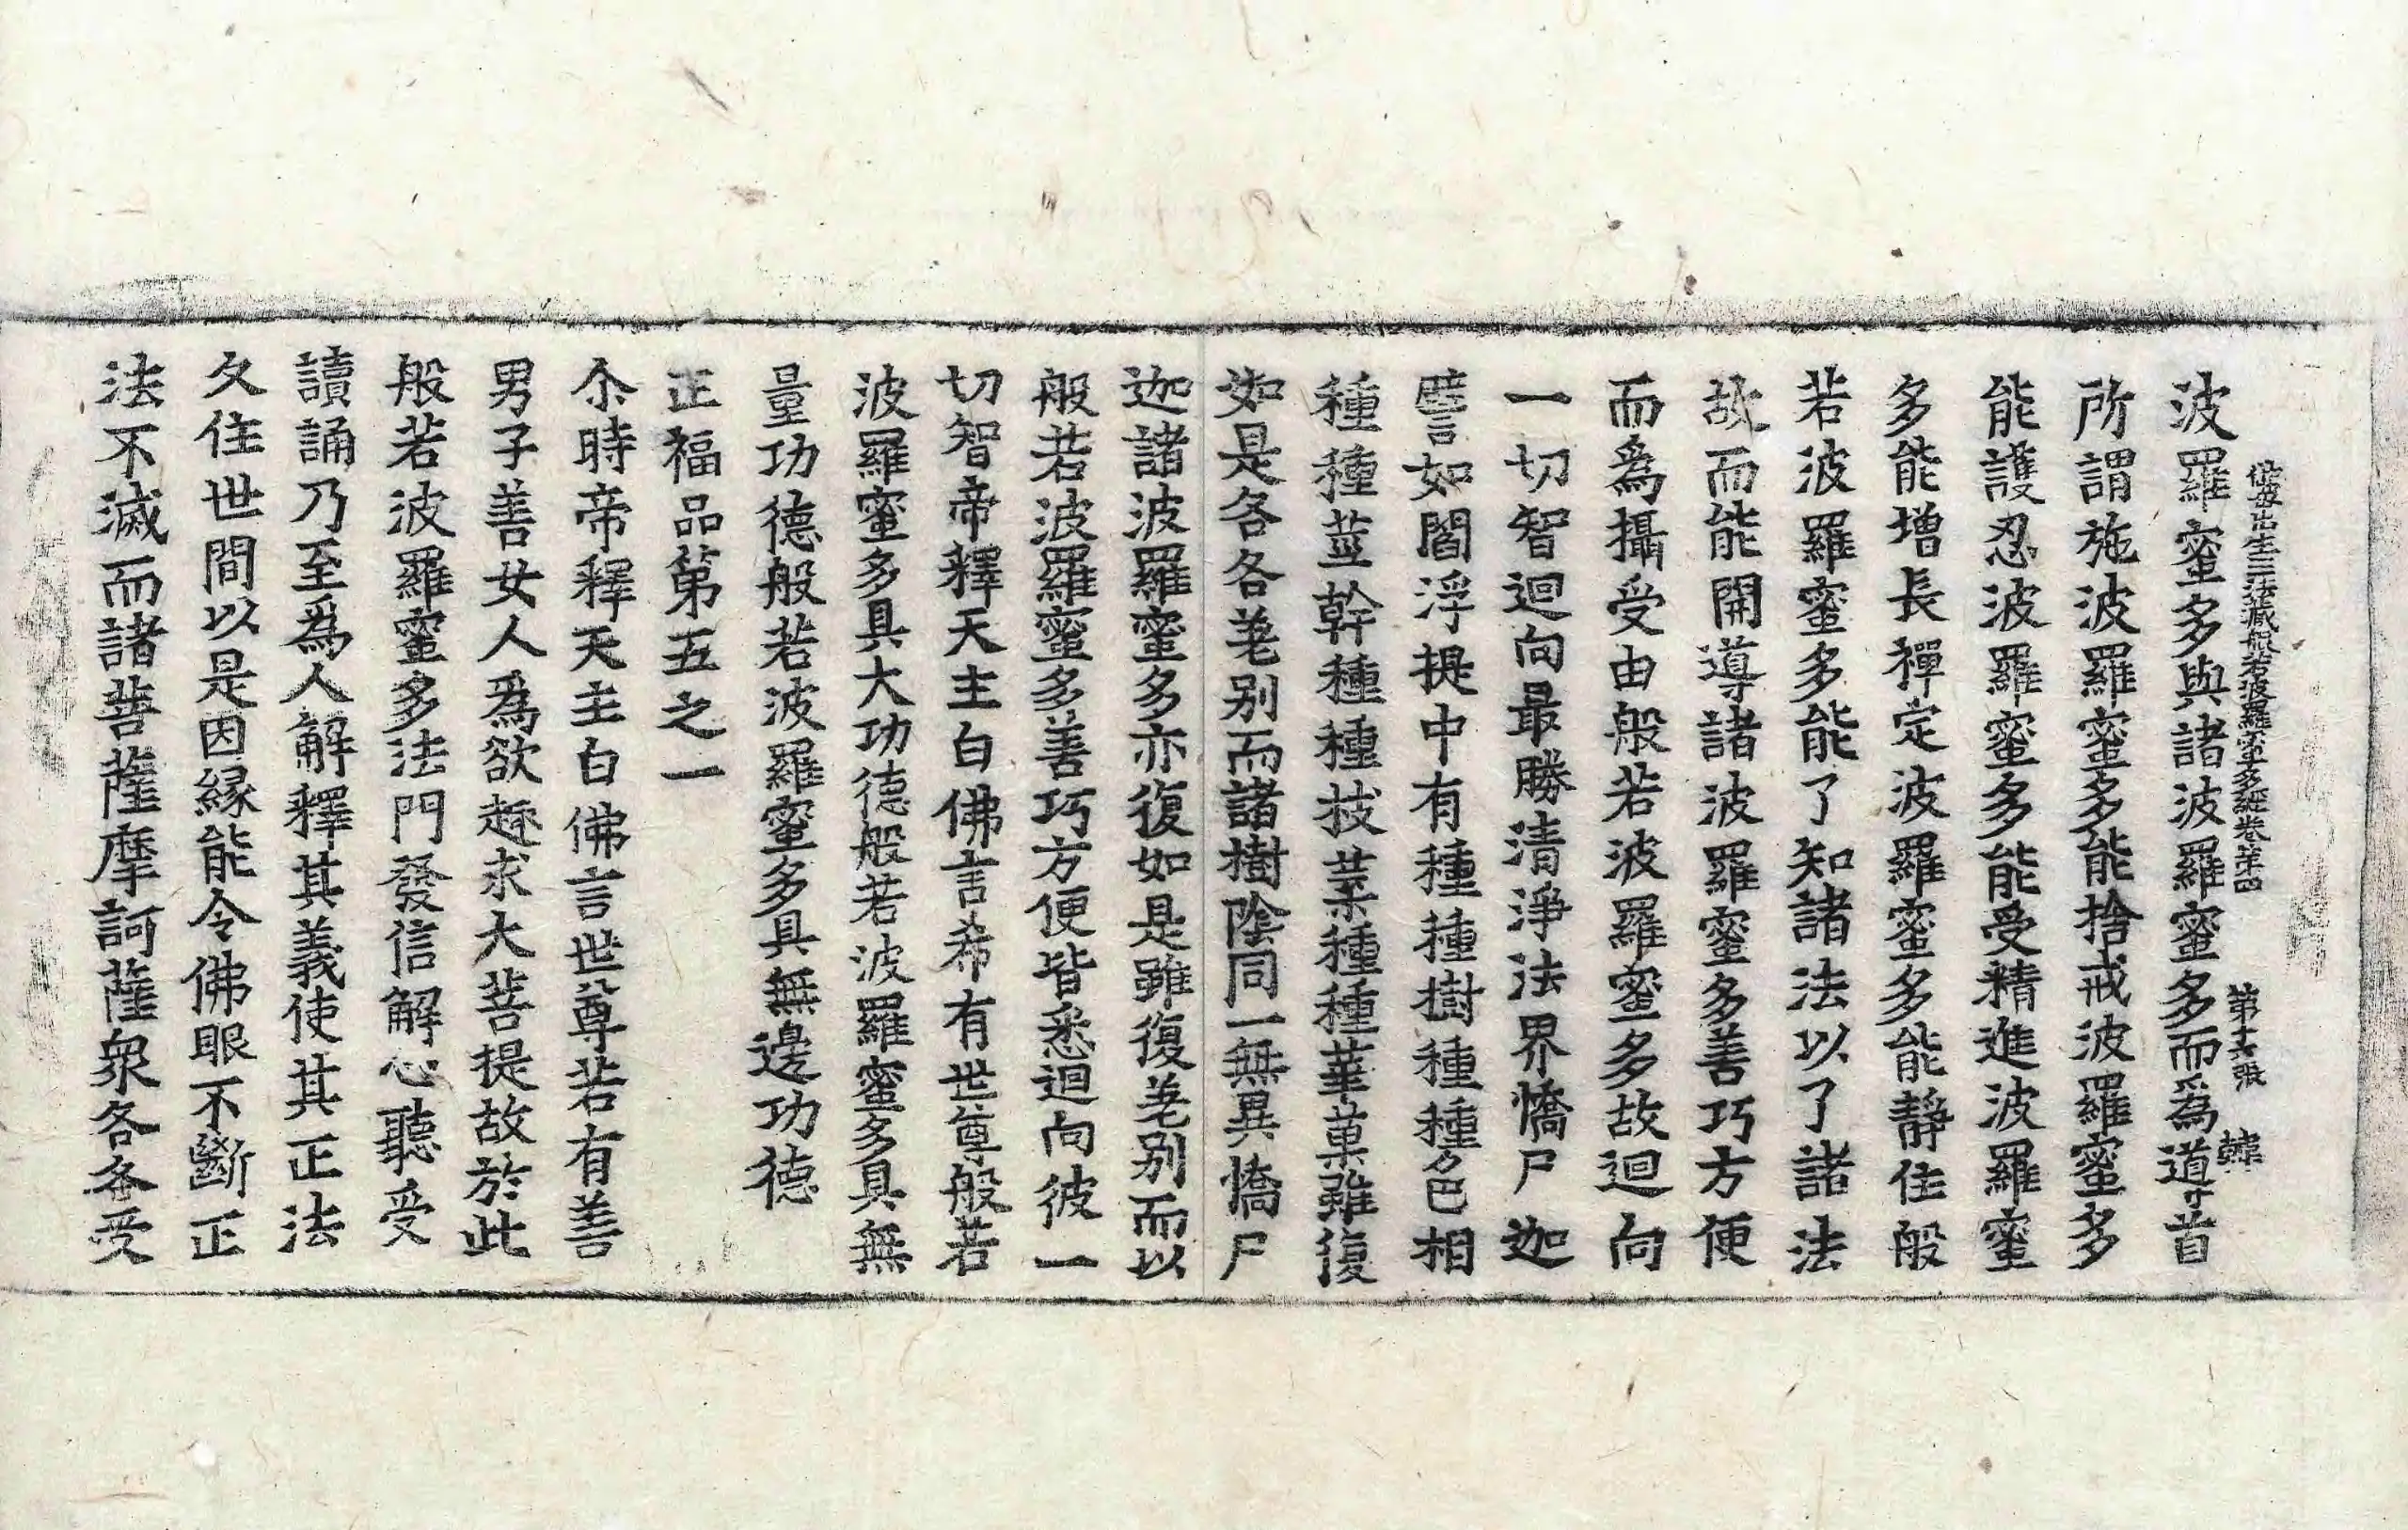 佛母出生三法藏般若波羅蜜多經卷第四 第十六張 韓
波羅蜜多與諸波羅蜜多而爲導首
所謂施波羅蜜多能捨戒波羅蜜多
能護忍波羅蜜多能受精進波羅蜜
多能增長禪定波羅蜜多能靜住般
若波羅蜜多能了知諸法以了諸法
故而能開導諸波羅蜜多善巧方便
而爲攝受由般若波羅蜜多故迴向
一切智迴向最勝清淨法界憍尸迦
譬如閻浮提中有種種樹種種色相
種種莖幹種種枝葉種種華菓雖復
如是各各差別而諸樹陰同一無異憍尸
迦諸波羅蜜多亦復如是雖復差別而以
般若波羅蜜多善巧方便皆悉迴向彼一
切智帝釋天主白佛言希有世尊般若
波羅蜜多具大功德般若波羅蜜多具無
量功德般若波羅蜜多具無邊功德
正福品第五之一
尒時帝釋天主白佛言世尊若有善
男子善女人爲欲趣求大菩提故於此
般若波羅蜜多法門發信解心聽受
讀誦乃至爲人解釋其義使其正法
久住世間以是因緣能令佛眼不斷正
法不滅而諸菩薩摩訶薩衆各各受